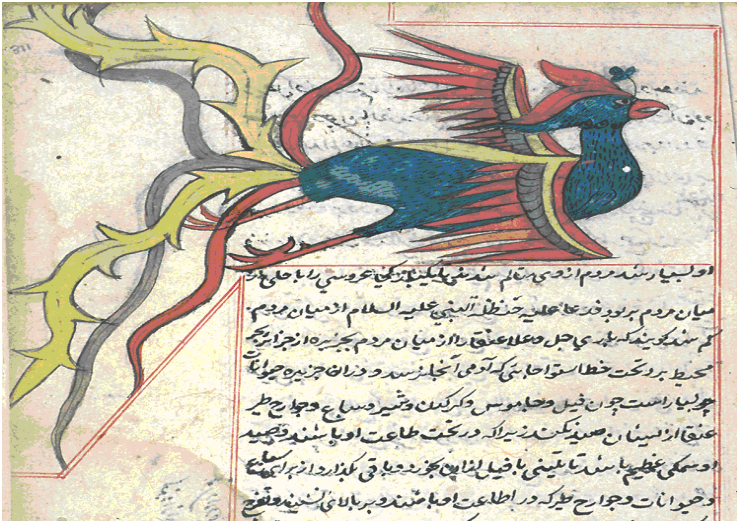 او بسیار شد مردم از وی متالم شدند تا یکبار عروسی را با حلی
میان مردم بربود فدعا علیه حنظلة النبی علیه السلام از میان مردم
کم شد گویند که باری جل و علا عنقا را از میان مردم بجزیره از جزایر بحر
محیط برد تحت خط استوا جایی که آدمی آنجا نرسد و در آن جزیره حیوانات
بسیار است چون فیل و جاموس و کرکدن و شیر و سباع و جوارح طیر
عنقا از ایشان صید نکند زیرا که در تحت طاعت او باشند و صید
او سمکی عظیم باشد تا تنینی یا فیل از این بخورد و باقی بگذارد از برای سباع
و حیوانات و جوارح طیر که در اطاعت او باشند و بر بالای نشیند و تفرج